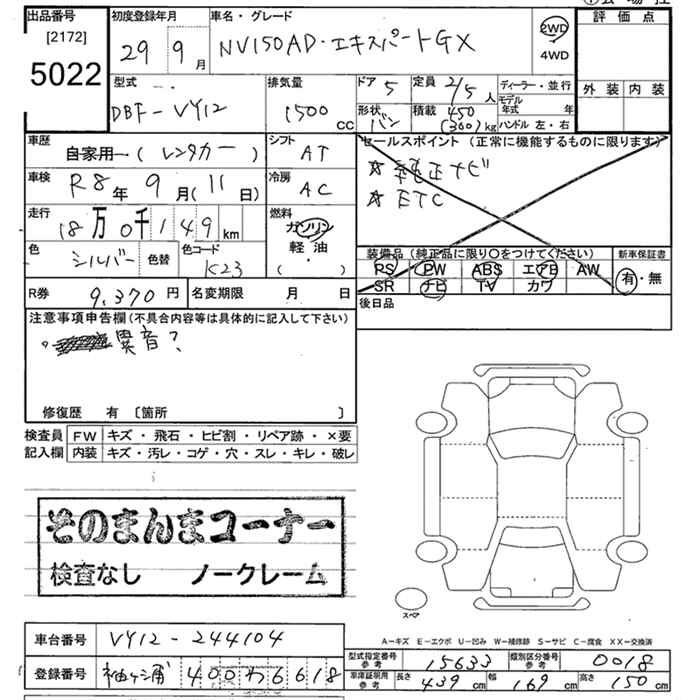 出品番号 初度登録年月 車名・グレード 2WD 評価点
[2172]
5022 29年 9月 NV150AD・エキスパートGX 4WD
型式 排気量 ドア 5 定員 2/5人 ディーラー・並行 外装 内装
DBF-VY12 1500cc 形状 バン 積載 450 (300)kg モデル年式 年
ハンドル 左・右
車歴 シフト セールスポイント (正常に機能するものに限ります)
自家用 (レンタカー) AT ☆純正ナビ
車検 R8年9月(11日) 冷房 AC ☆ETC
走行 18万0千149km 燃料 ガソリン
軽油
(・)
色 シルバー 色替 色コード K23
装備品 (純正品に限り○をつけてください) 新車保証書
PS PW ABS エアB AW 有・無
SR ナビ TV カワ
R券 9,370円 名変期限 月 日 後日品
注意事項申告欄(不具合内容等は具体的に記入して下さい)
異音?
修復歴 有 〔箇所 〕
検査員 FW キズ・飛石・ヒビ割・リペア跡・×要
記入欄 内装 キズ・汚レ・コゲ・穴・スレ・キレ・破レ
そのまんまコーナー
検査なし ノークレーム
スペア
A-キズ E-エクボ U-凹み W-補修跡 S-サビ C-腐食 XX-交換済
車台番号 VY12-244104
型式指定番号 参考 15633 類別区分番号 参考 0018
登録番号 袖ヶ浦 400 わ 6618
車庫証明用 参考 長さ 439cm 幅 169cm 高さ 150cm